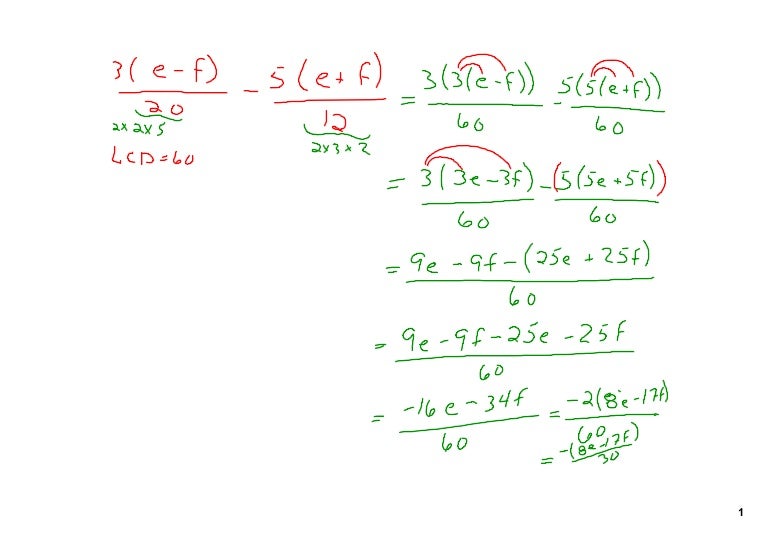 3(e-f)/20 - 5(e+f)/12 = 3(3(e-f))/60 - 5(5(e+f))/60
2x2x5
2x3x2
LCD=60
= 3(3e-3f)/60 - (5(5e+5f))/60
= 9e-9f-(25e+25f)/60
= 9e-9f-25e-25f/60
= -16e-34f/60 = -2(8e-17f)/60
= -(8e-17f)/30
1